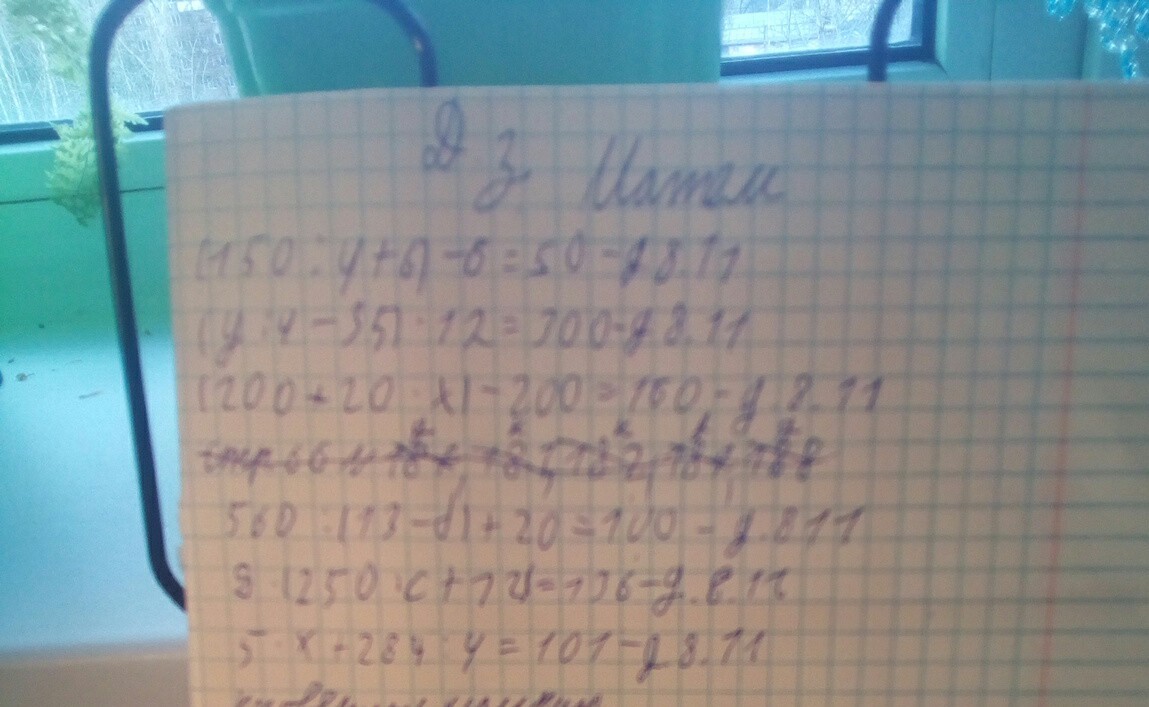 Д з Матем
(150 : y + 6) - 6 = 50 - д 8.11
(y : 4 - 35) · 12 = 300 - д 8.11
(200 + 20 · x) - 200 = 160 - д. 8.11
560 : (13 - d) + 20 = 100 - д. 8 11
8 · (250 : c + 12) = 136 - д. 8.11
5 · x + 284 : 4 = 101 - д 8.11